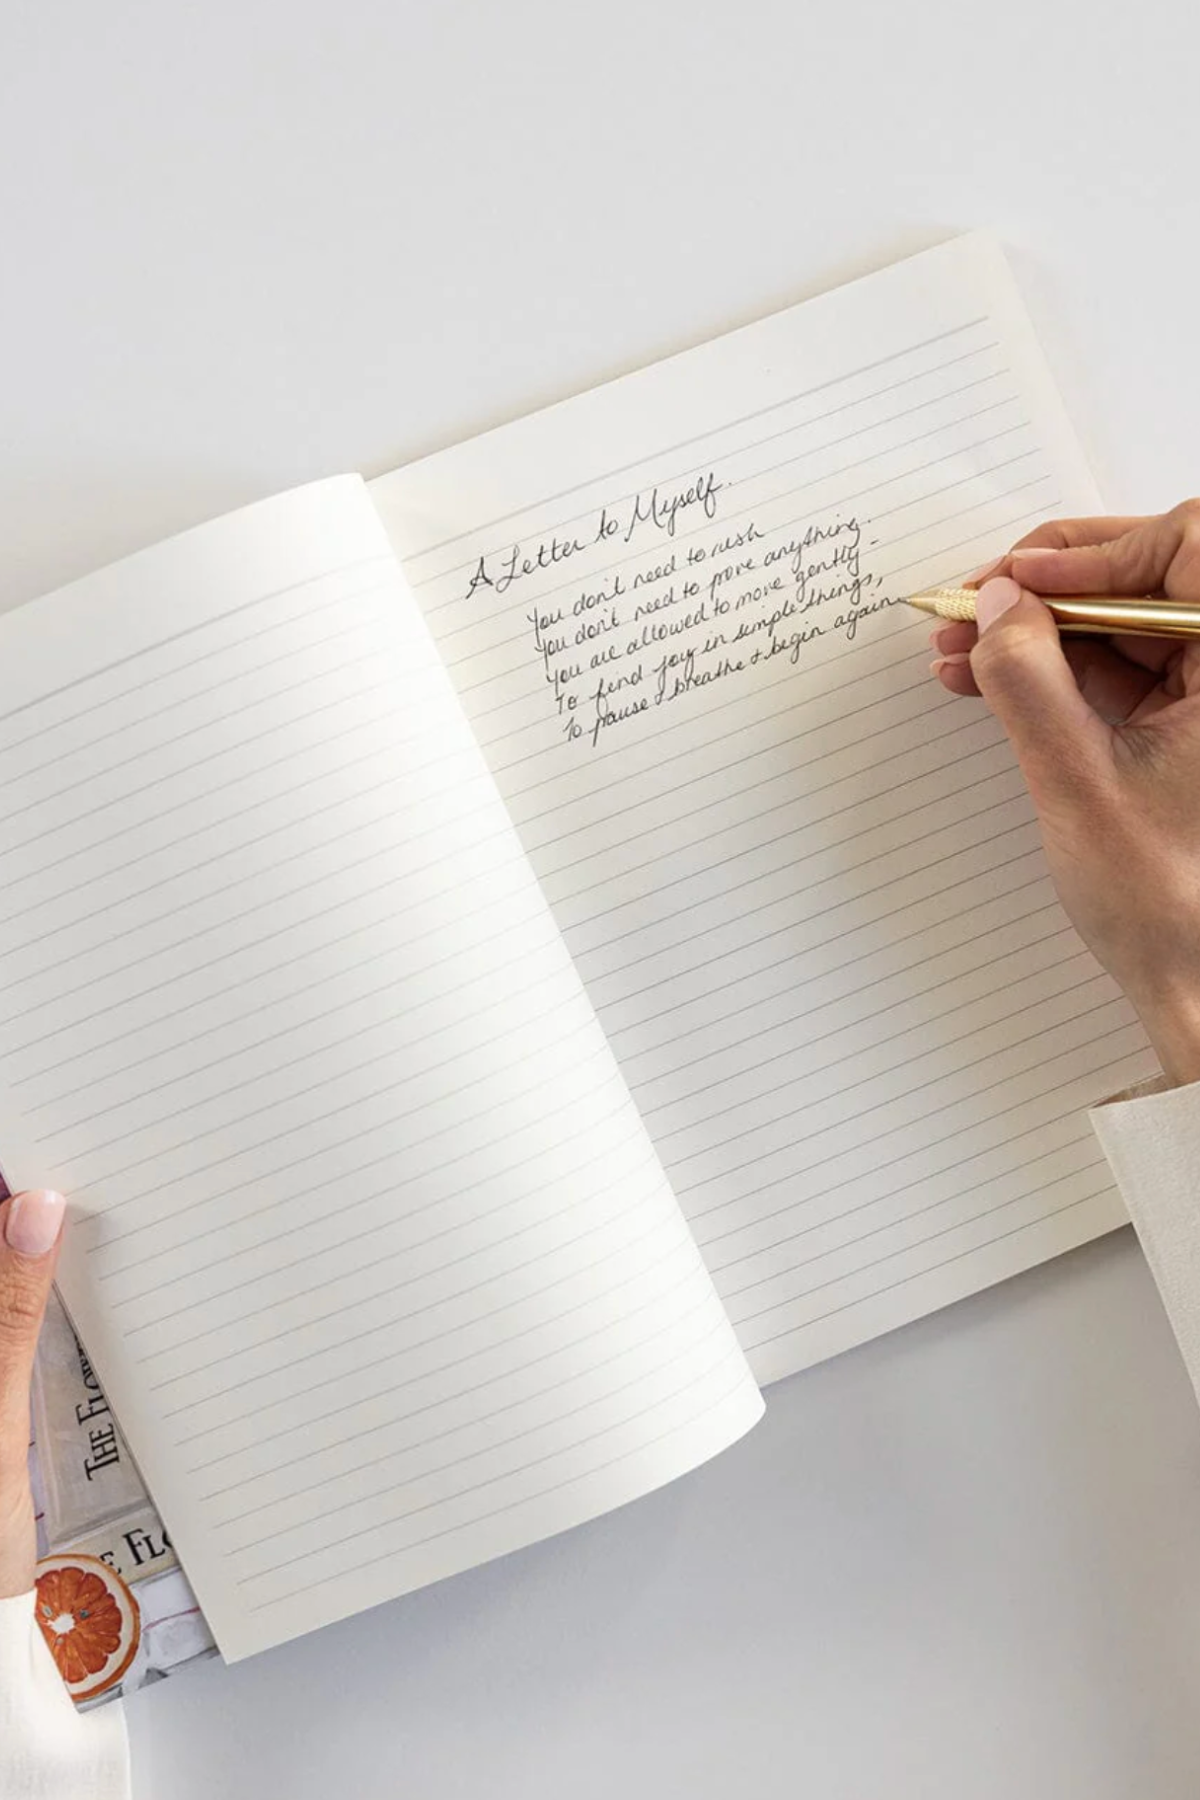 A Letter to Myself.
You don't need to rush
You don't need to prove anything.
You are allowed to move gently -
To find joy in simple things,
To pause & breathe & begin again
THE
E FL